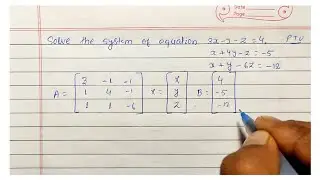 Date
Page
Solve the system of equation 3x-y-z=4, P.T.V
x+4y-z=-5
x+y-6z=-12
A= [3 -1 -1 x= [x B= [4
1 4 -1 y -5
1 1 -6] z] -12]